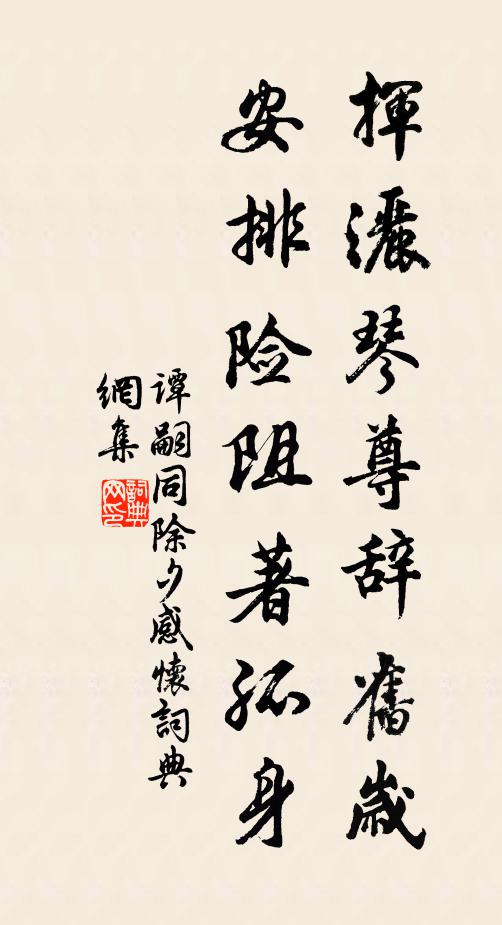 揮灑琴尊辞舊歲
安排险阻著孤身
譚嗣同除夕感懷詞典
網集
詞典
网印